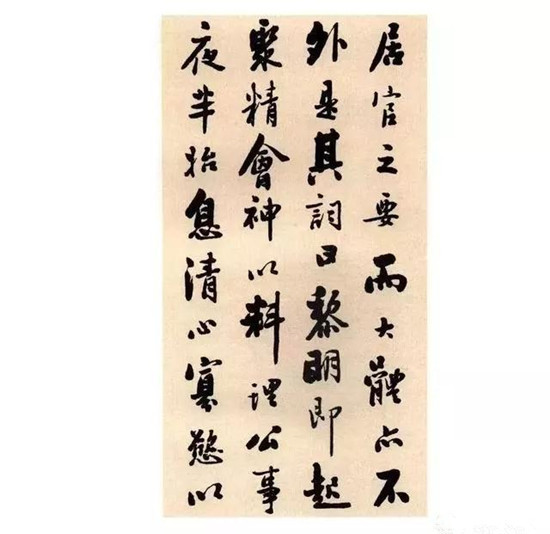 居官之要而大體亦不
外是其詞曰黎明即起
聚精會神以料理公事
夜半始息清心寡慾以